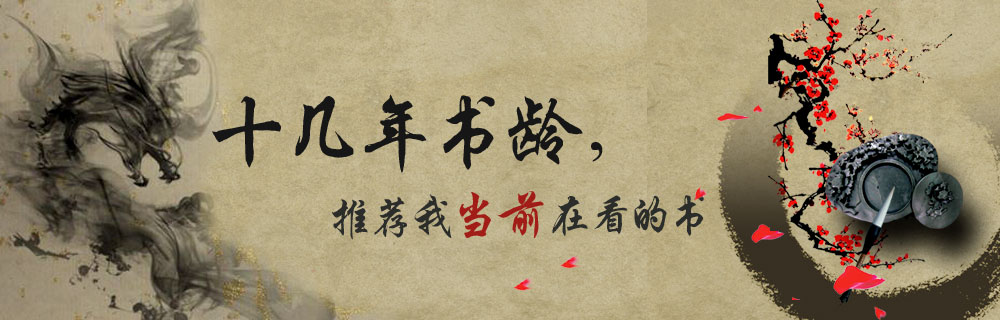 十几年书龄，
推荐我当前在看的书